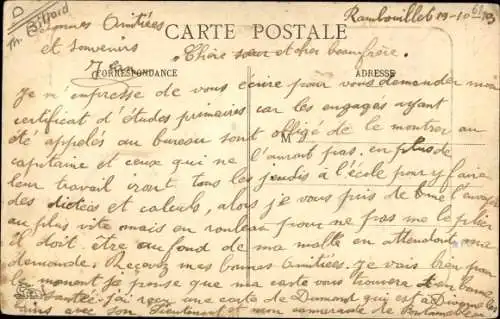 D
M. Billard
Bonnes Amitiées
et souvenirs
CARTE POSTALE
Rambouillet 19-10
Chère sœur et cher beaufrère
CORRESPONDANCE
ADRESSE
Je m'empresse de vous écrire pour vous demander mon
certificat d'études primaires car les engagés ayant
été appelés au bureau sont obligé de le montrer au
M
capitaine et ceux qui ne l'auront pas, en plus de
leur travail iront tous les jeudis à l'école pour y faire
des dictées et calculs, alors je vous prie de me l'envoyer
au plus vite mais en rouleau pour ne pas me le plier
il doit être au fond de ma malle en attendant ma
demande. Recevez mes bonnes Amitiées. Je vais bien pour
le moment je pense que ma carte vous trouvera en bonne
santée j'ai reçu une carte de Dumond qui est à
bains avec son Lieutenant et mon camarade de